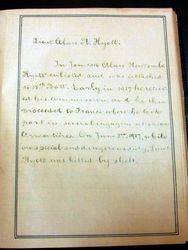 Lieut Alan N. Hyett.
In Jan 1916 Alan
Hyett enlisted, and was attached
to Batt. Early in 1917 he received
his commission, and he then
proceeded to France where he took
part in several engagements near
Armentières. On June 1917, while
on special and dangerous duty, Lieut
Hyett was killed by shell.